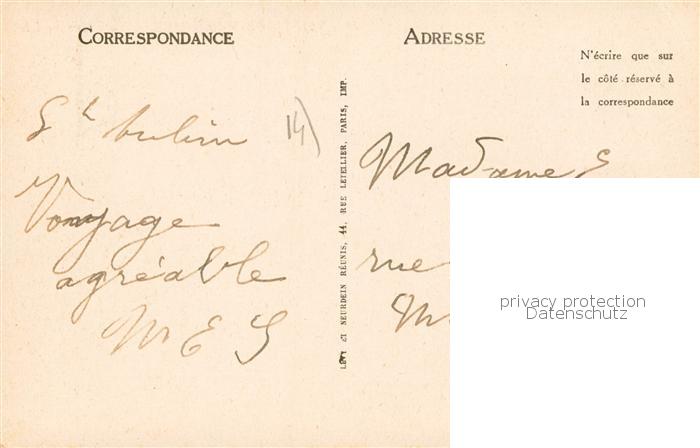 CORRESPONDANCE
ADRESSE
N'écrire que sur
le côté réservé à
la correspondance
14)
Voyage
agréable
M E S
LEVY ET NEURDEIN RÉUNIS, 44, RUE LETELLIER, PARIS, IMP.
Madame S
rue
M
privacy protection
Datenschutz